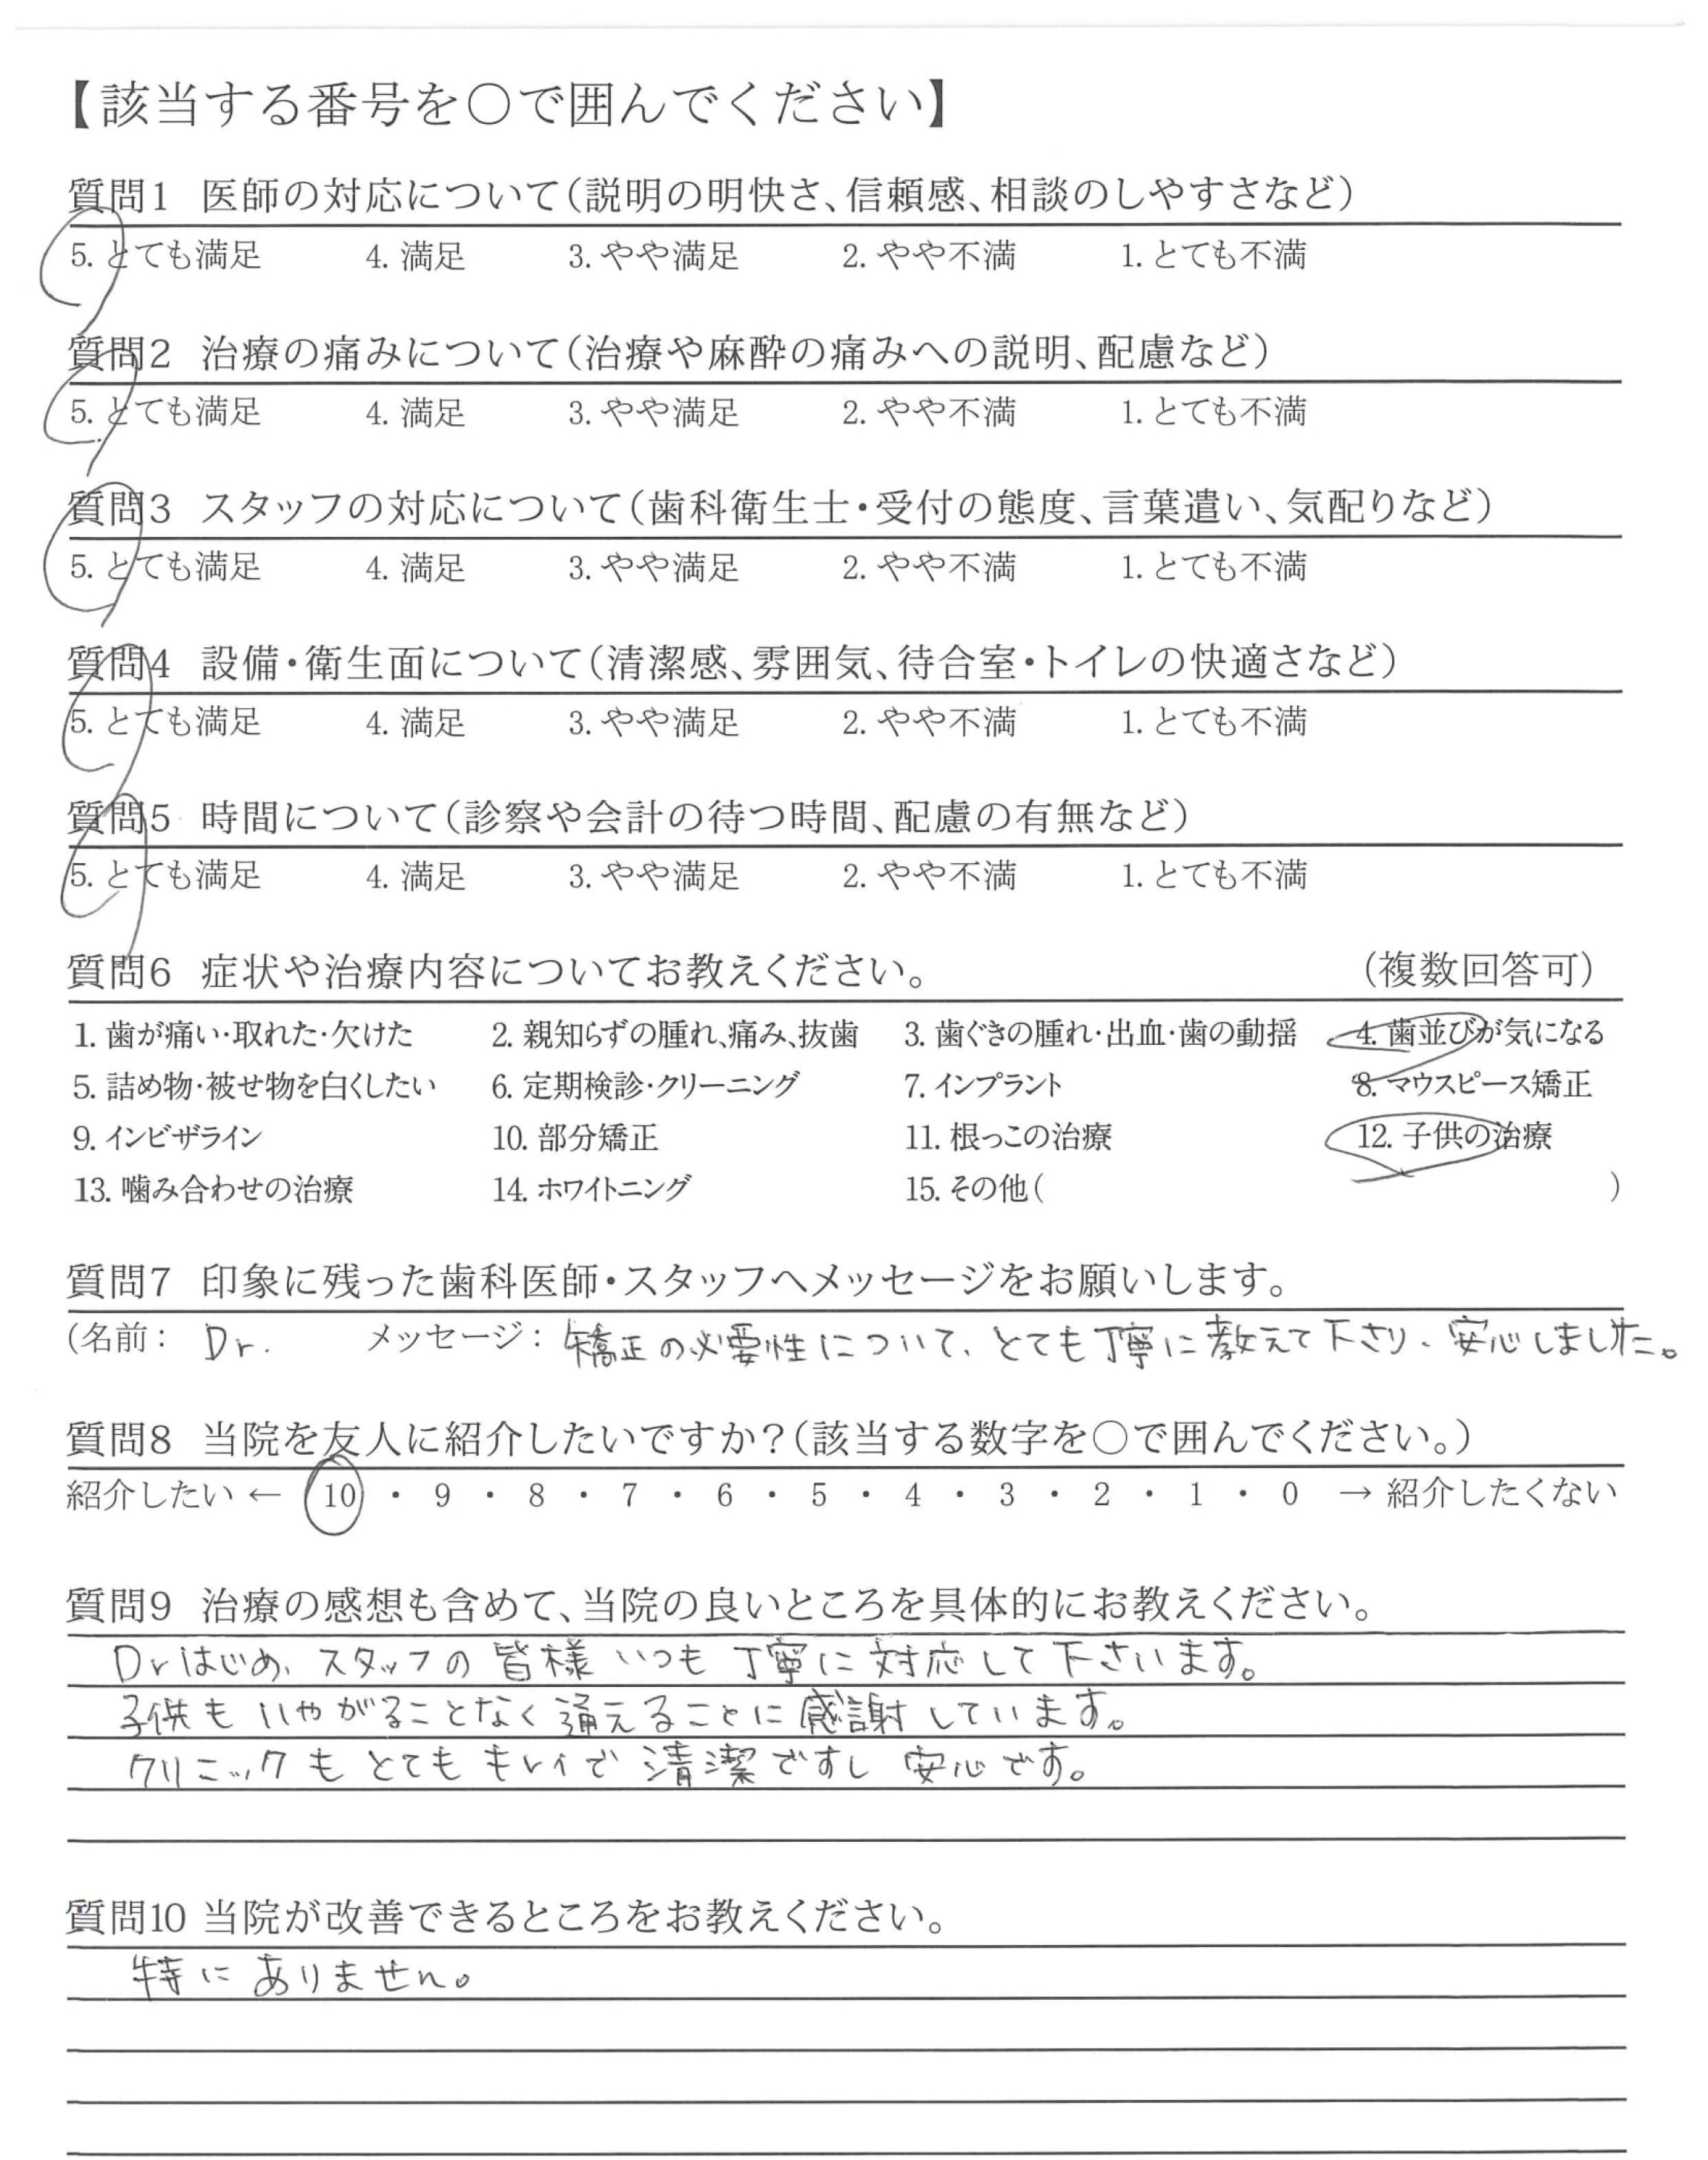 【該当する番号を○で囲んでください】
質問1 医師の対応について(説明の明快さ、信頼感、相談のしやすさなど)
5. とても満足 4. 満足 3. やや満足 2. やや不満 1. とても不満
質問2 治療の痛みについて(治療や麻酔の痛みへの説明、配慮など)
5. とても満足 4. 満足 3. やや満足 2. やや不満 1. とても不満
質問3 スタッフの対応について(歯科衛生士・受付の態度、言葉遣い、気配りなど)
5. とても満足 4. 満足 3. やや満足 2. やや不満 1. とても不満
質問4 設備・衛生面について(清潔感、雰囲気、待合室・トイレの快適さなど)
5. とても満足 4. 満足 3. やや満足 2. やや不満 1. とても不満
質問5 時間について(診察や会計の待つ時間、配慮の有無など)
5. とても満足 4. 満足 3. やや満足 2. やや不満 1. とても不満
質問6 症状や治療内容についてお教えください。 (複数回答可)
1. 歯が痛い・取れた・欠けた 2. 親知らずの腫れ、痛み、抜歯 3. 歯ぐきの腫れ・出血・歯の動揺 4. 歯並びが気になる
5. 詰め物・被せ物を白くしたい 6. 定期検診・クリーニング 7. インプラント 8. マウスピース矯正
9. インビザライン 10. 部分矯正 11. 根っこの治療 12. 子供の治療
13. 噛み合わせの治療 14. ホワイトニング 15. その他( )
質問7 印象に残った歯科医師・スタッフへメッセージをお願いします。
(名前： Dr. メッセージ： 矯正の必要性について、とても丁寧に教えて下さり、安心しました。
質問8 当院を友人に紹介したいですか？(該当する数字を○で囲んでください。)
紹介したい ← 10 ・ 9 ・ 8 ・ 7 ・ 6 ・ 5 ・ 4 ・ 3 ・ 2 ・ 1 ・ 0 → 紹介したくない
質問9 治療の感想も含めて、当院の良いところを具体的にお教えください。
Drはじめ、スタッフの皆様いつも丁寧に対応して下さいます。
子供もいやがることなく通えることに感謝しています。
クリニックもとてもキレイで清潔ですし安心です。
質問10 当院が改善できるところをお教えください。
特にありません。